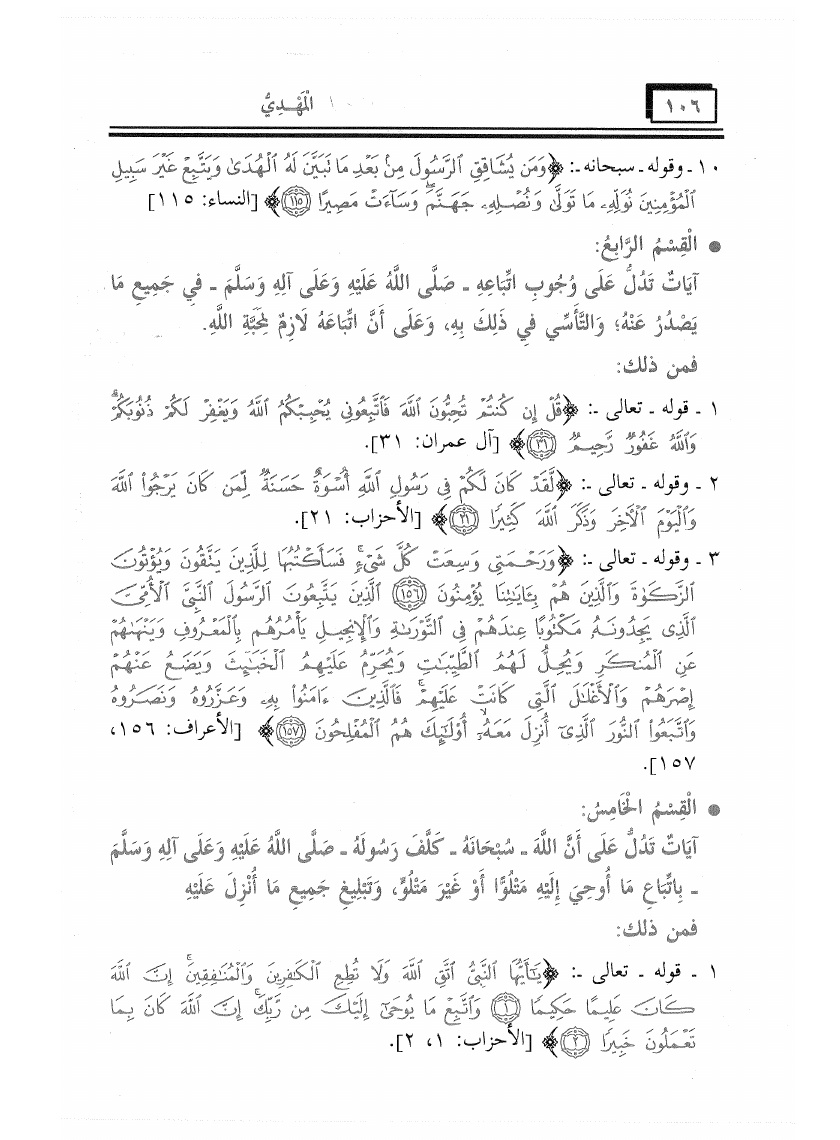 ١٠٦
الْمَهْدِيُّ
١٠ ـ وقوله ـ سبحانه ـ: ﴿وَمَن يُشَاقِقِ ٱلرَّسُولَ مِنۢ بَعْدِ مَا تَبَيَّنَ لَهُ ٱلْهُدَىٰ وَيَتَّبِعْ غَيْرَ سَبِيلِ
ٱلْمُؤْمِنِينَ نُوَلِّهِۦ مَا تَوَلَّىٰ وَنُصْلِهِۦ جَهَنَّمَ ۖ وَسَآءَتْ مَصِيرًا ۝١١٥﴾ [النساء: ١١٥]
● الْقِسْمُ الرَّابِعُ:
آيَاتٌ تَدُلُّ عَلَى وُجُوبِ اتِّبَاعِهِ ـ صَلَّى اللَّهُ عَلَيْهِ وَعَلَى آلِهِ وَسَلَّمَ ـ فِي جَمِيعِ مَا
يَصْدُرُ عَنْهُ؛ وَالتَّأَسِّي فِي ذَلِكَ بِهِ، وَعَلَى أَنَّ اتِّبَاعَهُ لَازِمٌ لِمَحَبَّةِ اللَّهِ.
فمن ذلك:
١ ـ قوله ـ تعالى ـ: ﴿قُلْ إِن كُنتُمْ تُحِبُّونَ ٱللَّهَ فَٱتَّبِعُونِى يُحْبِبْكُمُ ٱللَّهُ وَيَغْفِرْ لَكُمْ ذُنُوبَكُمْ ۗ
وَٱللَّهُ غَفُورٌ رَّحِيمٌ ۝٣١﴾ [آل عمران: ٣١].
٢ ـ وقوله ـ تعالى ـ: ﴿لَّقَدْ كَانَ لَكُمْ فِى رَسُولِ ٱللَّهِ أُسْوَةٌ حَسَنَةٌ لِّمَن كَانَ يَرْجُوا۟ ٱللَّهَ
وَٱلْيَوْمَ ٱلْءَاخِرَ وَذَكَرَ ٱللَّهَ كَثِيرًا ۝٢١﴾ [الأحزاب: ٢١].
٣ ـ وقوله ـ تعالى ـ: ﴿وَرَحْمَتِى وَسِعَتْ كُلَّ شَىْءٍ ۚ فَسَأَكْتُبُهَا لِلَّذِينَ يَتَّقُونَ وَيُؤْتُونَ
ٱلزَّكَوٰةَ وَٱلَّذِينَ هُم بِـَٔايَـٰتِنَا يُؤْمِنُونَ ۝١٥٦ ٱلَّذِينَ يَتَّبِعُونَ ٱلرَّسُولَ ٱلنَّبِىَّ ٱلْأُمِّىَّ
ٱلَّذِى يَجِدُونَهُۥ مَكْتُوبًا عِندَهُمْ فِى ٱلتَّوْرَىٰةِ وَٱلْإِنجِيلِ يَأْمُرُهُم بِٱلْمَعْرُوفِ وَيَنْهَىٰهُمْ
عَنِ ٱلْمُنكَرِ وَيُحِلُّ لَهُمُ ٱلطَّيِّبَـٰتِ وَيُحَرِّمُ عَلَيْهِمُ ٱلْخَبَـٰٓئِثَ وَيَضَعُ عَنْهُمْ
إِصْرَهُمْ وَٱلْأَغْلَـٰلَ ٱلَّتِى كَانَتْ عَلَيْهِمْ ۚ فَٱلَّذِينَ ءَامَنُوا۟ بِهِۦ وَعَزَّرُوهُ وَنَصَرُوهُ
وَٱتَّبَعُوا۟ ٱلنُّورَ ٱلَّذِىٓ أُنزِلَ مَعَهُۥٓ ۙ أُو۟لَـٰٓئِكَ هُمُ ٱلْمُفْلِحُونَ ۝١٥٧﴾ [الأعراف: ١٥٦،
١٥٧].
● الْقِسْمُ الْخَامِسُ:
آيَاتٌ تَدُلُّ عَلَى أَنَّ اللَّهَ ـ سُبْحَانَهُ ـ كَلَّفَ رَسُولَهُ ـ صَلَّى اللَّهُ عَلَيْهِ وَعَلَى آلِهِ وَسَلَّمَ
ـ بِاتِّبَاعِ مَا أُوحِيَ إِلَيْهِ مَتْلُوًّا أَوْ غَيْرَ مَتْلُوٍّ، وَتَبْلِيغِ جَمِيعِ مَا أُنْزِلَ عَلَيْهِ
فمن ذلك:
١ ـ قوله ـ تعالى ـ: ﴿يَـٰٓأَيُّهَا ٱلنَّبِىُّ ٱتَّقِ ٱللَّهَ وَلَا تُطِعِ ٱلْكَـٰفِرِينَ وَٱلْمُنَـٰفِقِينَ ۗ إِنَّ ٱللَّهَ
كَانَ عَلِيمًا حَكِيمًا ۝١ وَٱتَّبِعْ مَا يُوحَىٰٓ إِلَيْكَ مِن رَّبِّكَ ۚ إِنَّ ٱللَّهَ كَانَ بِمَا
تَعْمَلُونَ خَبِيرًا ۝٢﴾ [الأحزاب: ١، ٢].